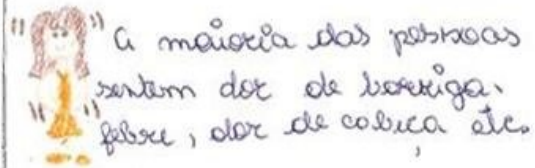 A maioria das pessoas
sentem dor de barriga,
febre, dor de cabeça etc.